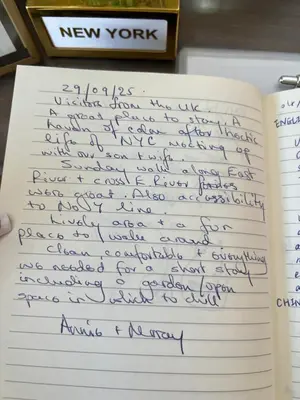 NEW YORK
29/09/25.
Visitors from the UK.
A great place to stay. A
haven of calm after hectic
life of NYC meeting up
with our son + wife.
Sunday walk along East
River + cross E. River
were great. Also accessibility
to No 7 line.
Lively area + a fun
place to walk around
Clean comfortable + everything
we needed for a short stay
including a garden/open
space in which to chill
Annie + Murray
ENGL
CHIN